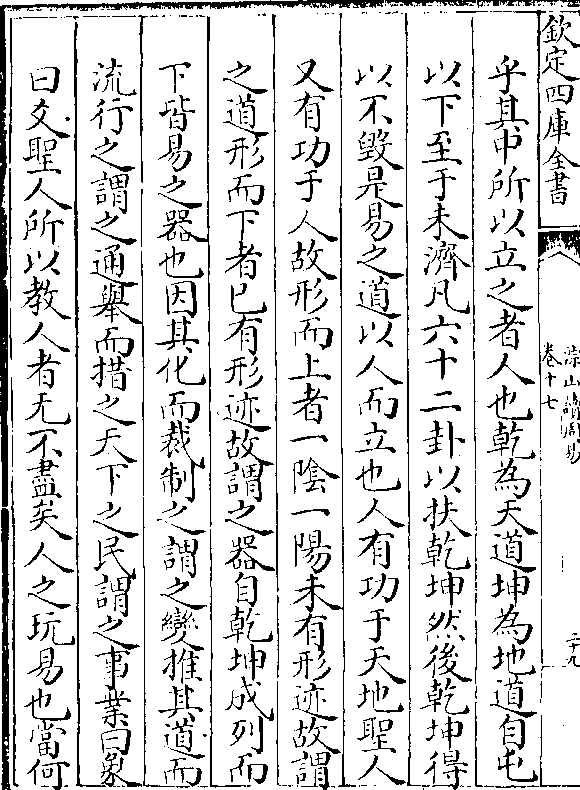 欽定四庫全書
深山讀周易
卷十七
二十九
乎其中所以立之者人也乾為天道坤為地道自屯
以下至于未濟凡六十二卦以扶乾坤然後乾坤得
以不毀是易之道以人而立也人有功于天地聖人
又有功于人故形而上者一陰一陽未有形迹故謂
之道形而下者已有形迹故謂之器自乾坤成列而
下皆易之器也因其化而裁制之謂之變推其道而
流行之謂之通舉而措之天下之民謂之事業曰象
曰爻聖人所以教人者无不盡矣人之玩易也當何